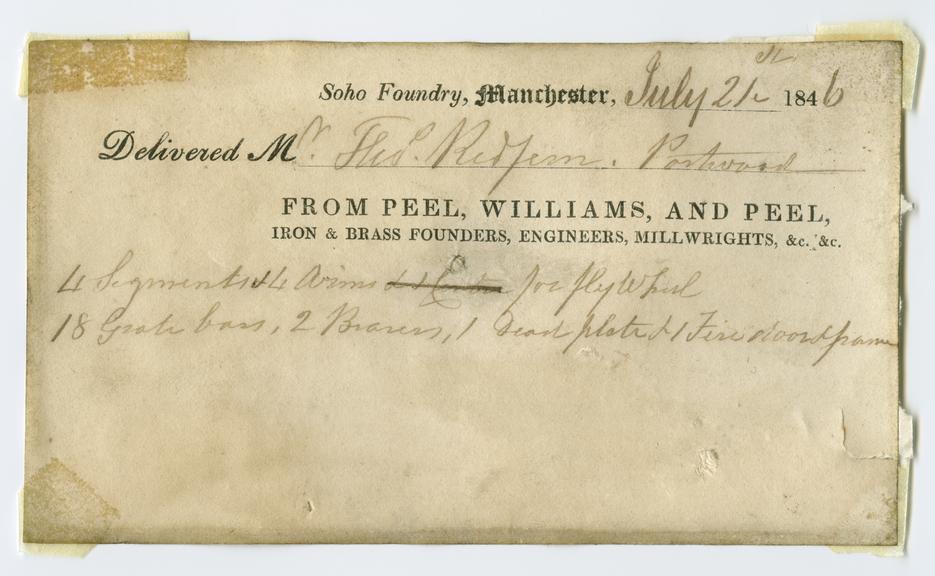 Soho Foundry, Manchester, July 21st 1846
Delivered Mr. Thos. Redfern. Portwood
FROM PEEL, WILLIAMS, AND PEEL,
IRON & BRASS FOUNDERS, ENGINEERS, MILLWRIGHTS, &c. &c.
4 Segments & 4 Arms for fly Wheel
18 Grate bars, 2 Bearers, 1 Dead plate & 1 Fire door & frame